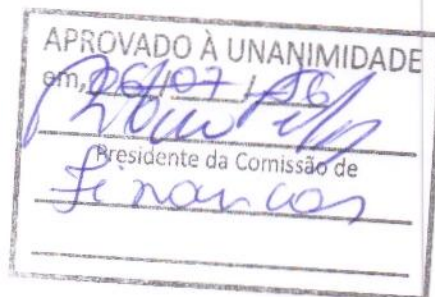 APROVADO À UNANIMIDADE
em, 06/07/16
Presidente da Comissão de
Finanças